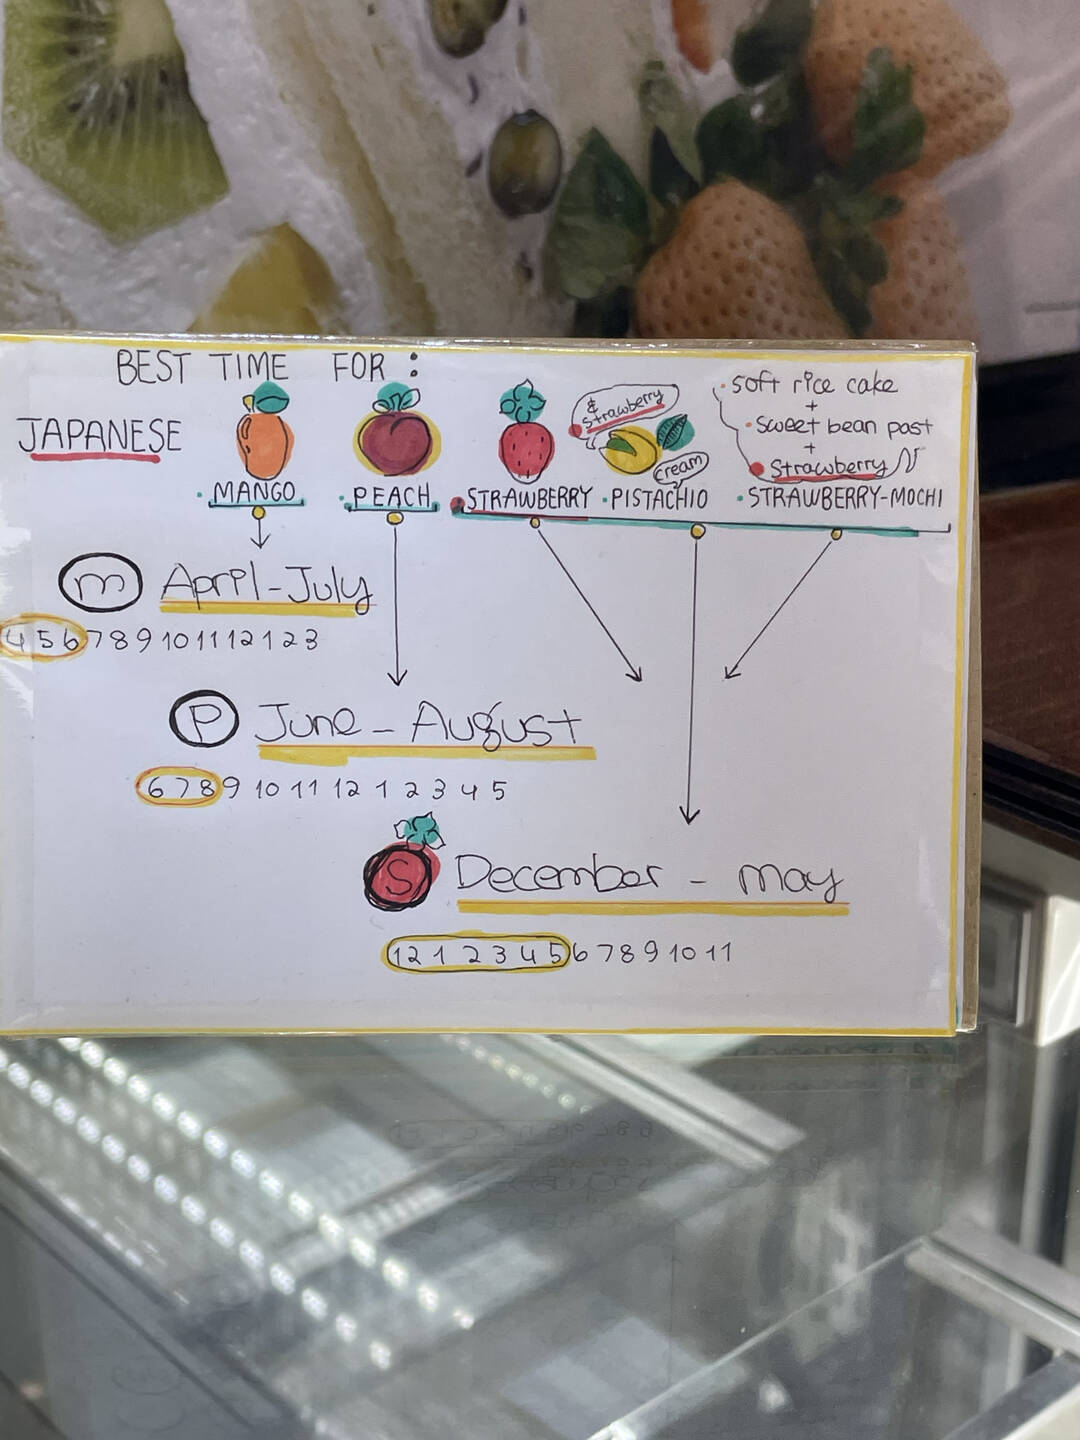 BEST TIME FOR :
JAPANESE
& strawberry
cream
• soft rice cake
+
• sweet bean past
+
Strawberry
• MANGO
• PEACH
STRAWBERRY
• PISTACHIO
• STRAWBERRY-MOCHI
m April-July
4 5 6 7 8 9 10 11 12 1 2 3
P June - August
6 7 8 9 10 11 12 1 2 3 4 5
S December - may
12 1 2 3 4 5 6 7 8 9 10 11